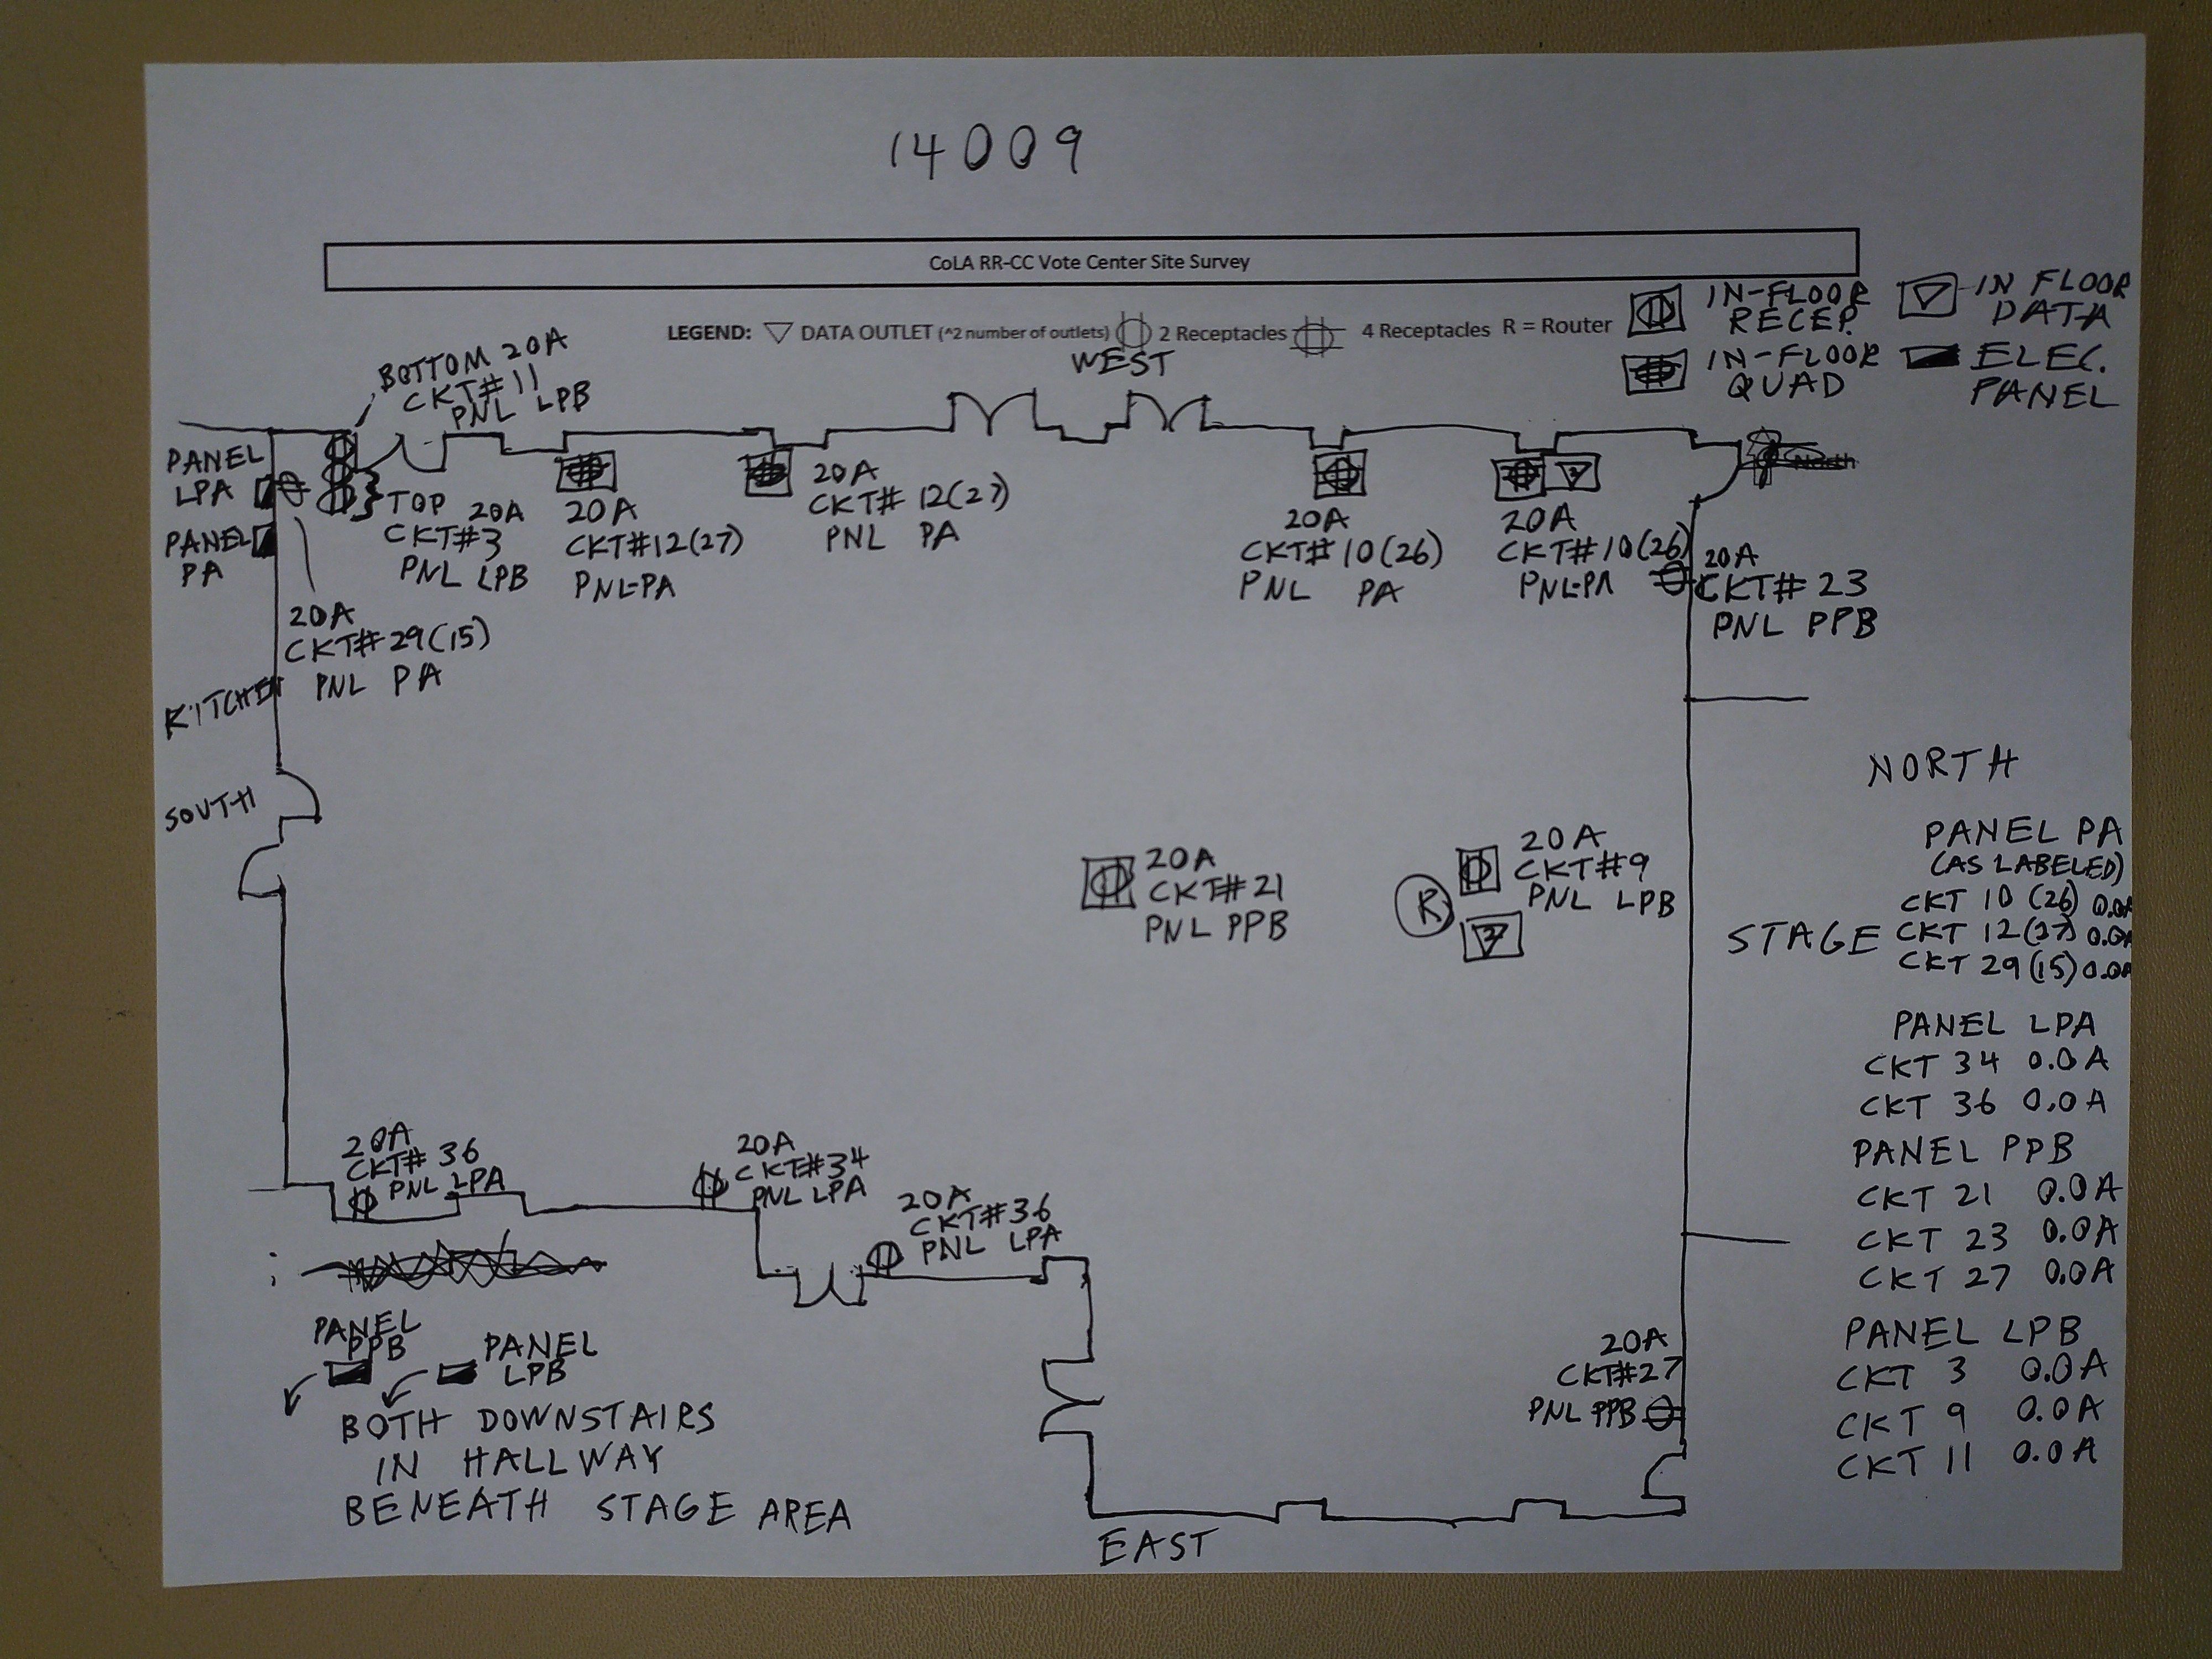 14009
CoLA RR-CC Vote Center Site Survey
LEGEND: ▽ DATA OUTLET (^2 number of outlets) 2 Receptacles 4 Receptacles R = Router
IN-FLOOR
RECEP.
IN FLOOR
DATA
IN-FLOOR
QUAD
ELEC.
PANEL
WEST
BOTTOM 20A
CKT#11
PNL LPB
PANEL
LPA
PANEL
PA
TOP 20A
CKT#3
PNL LPB
20A
CKT#12(27)
PNL-PA
20A
CKT# 12(27)
PNL PA
20A
CKT# 10(26)
PNL PA
20A
CKT#10(26)
PNL-PA
North
20A
CKT# 23
PNL PPB
20A
CKT#29(15)
PNL PA
KITCHEN
SOUTH
NORTH
STAGE
20A
CKT#21
PNL PPB
R
20A
CKT#9
PNL LPB
2
PANEL PA
(AS LABELED)
CKT 10 (26) 0.0A
CKT 12(27) 0.0A
CKT 29(15) 0.0A
PANEL LPA
CKT 34 0.0A
CKT 36 0.0A
PANEL PPB
CKT 21 0.0A
CKT 23 0.0A
CKT 27 0.0A
PANEL LPB
CKT 3 0.0A
CKT 9 0.0A
CKT 11 0.0A
20A
CKT# 36
PNL LPA
20A
CKT#34
PNL LPA
20A
CKT#36
PNL LPA
20A
CKT#27
PNL PPB
PANEL
PPB
PANEL
LPB
BOTH DOWNSTAIRS
IN HALLWAY
BENEATH STAGE AREA
EAST